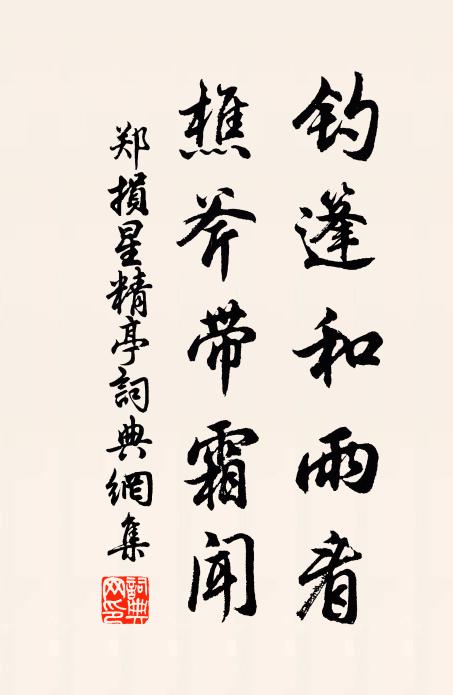 钓篷和雨看
樵斧带霜闻
郑损星精亭詞典網集
詞典网印